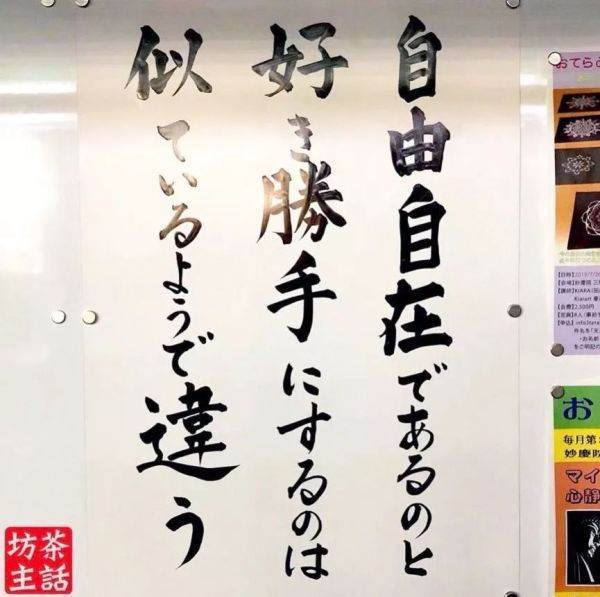 自由自在であるのと
好き勝手にするのは
似ているようで違う
茶話
坊主
おてら
お
毎月第
マイ
心静